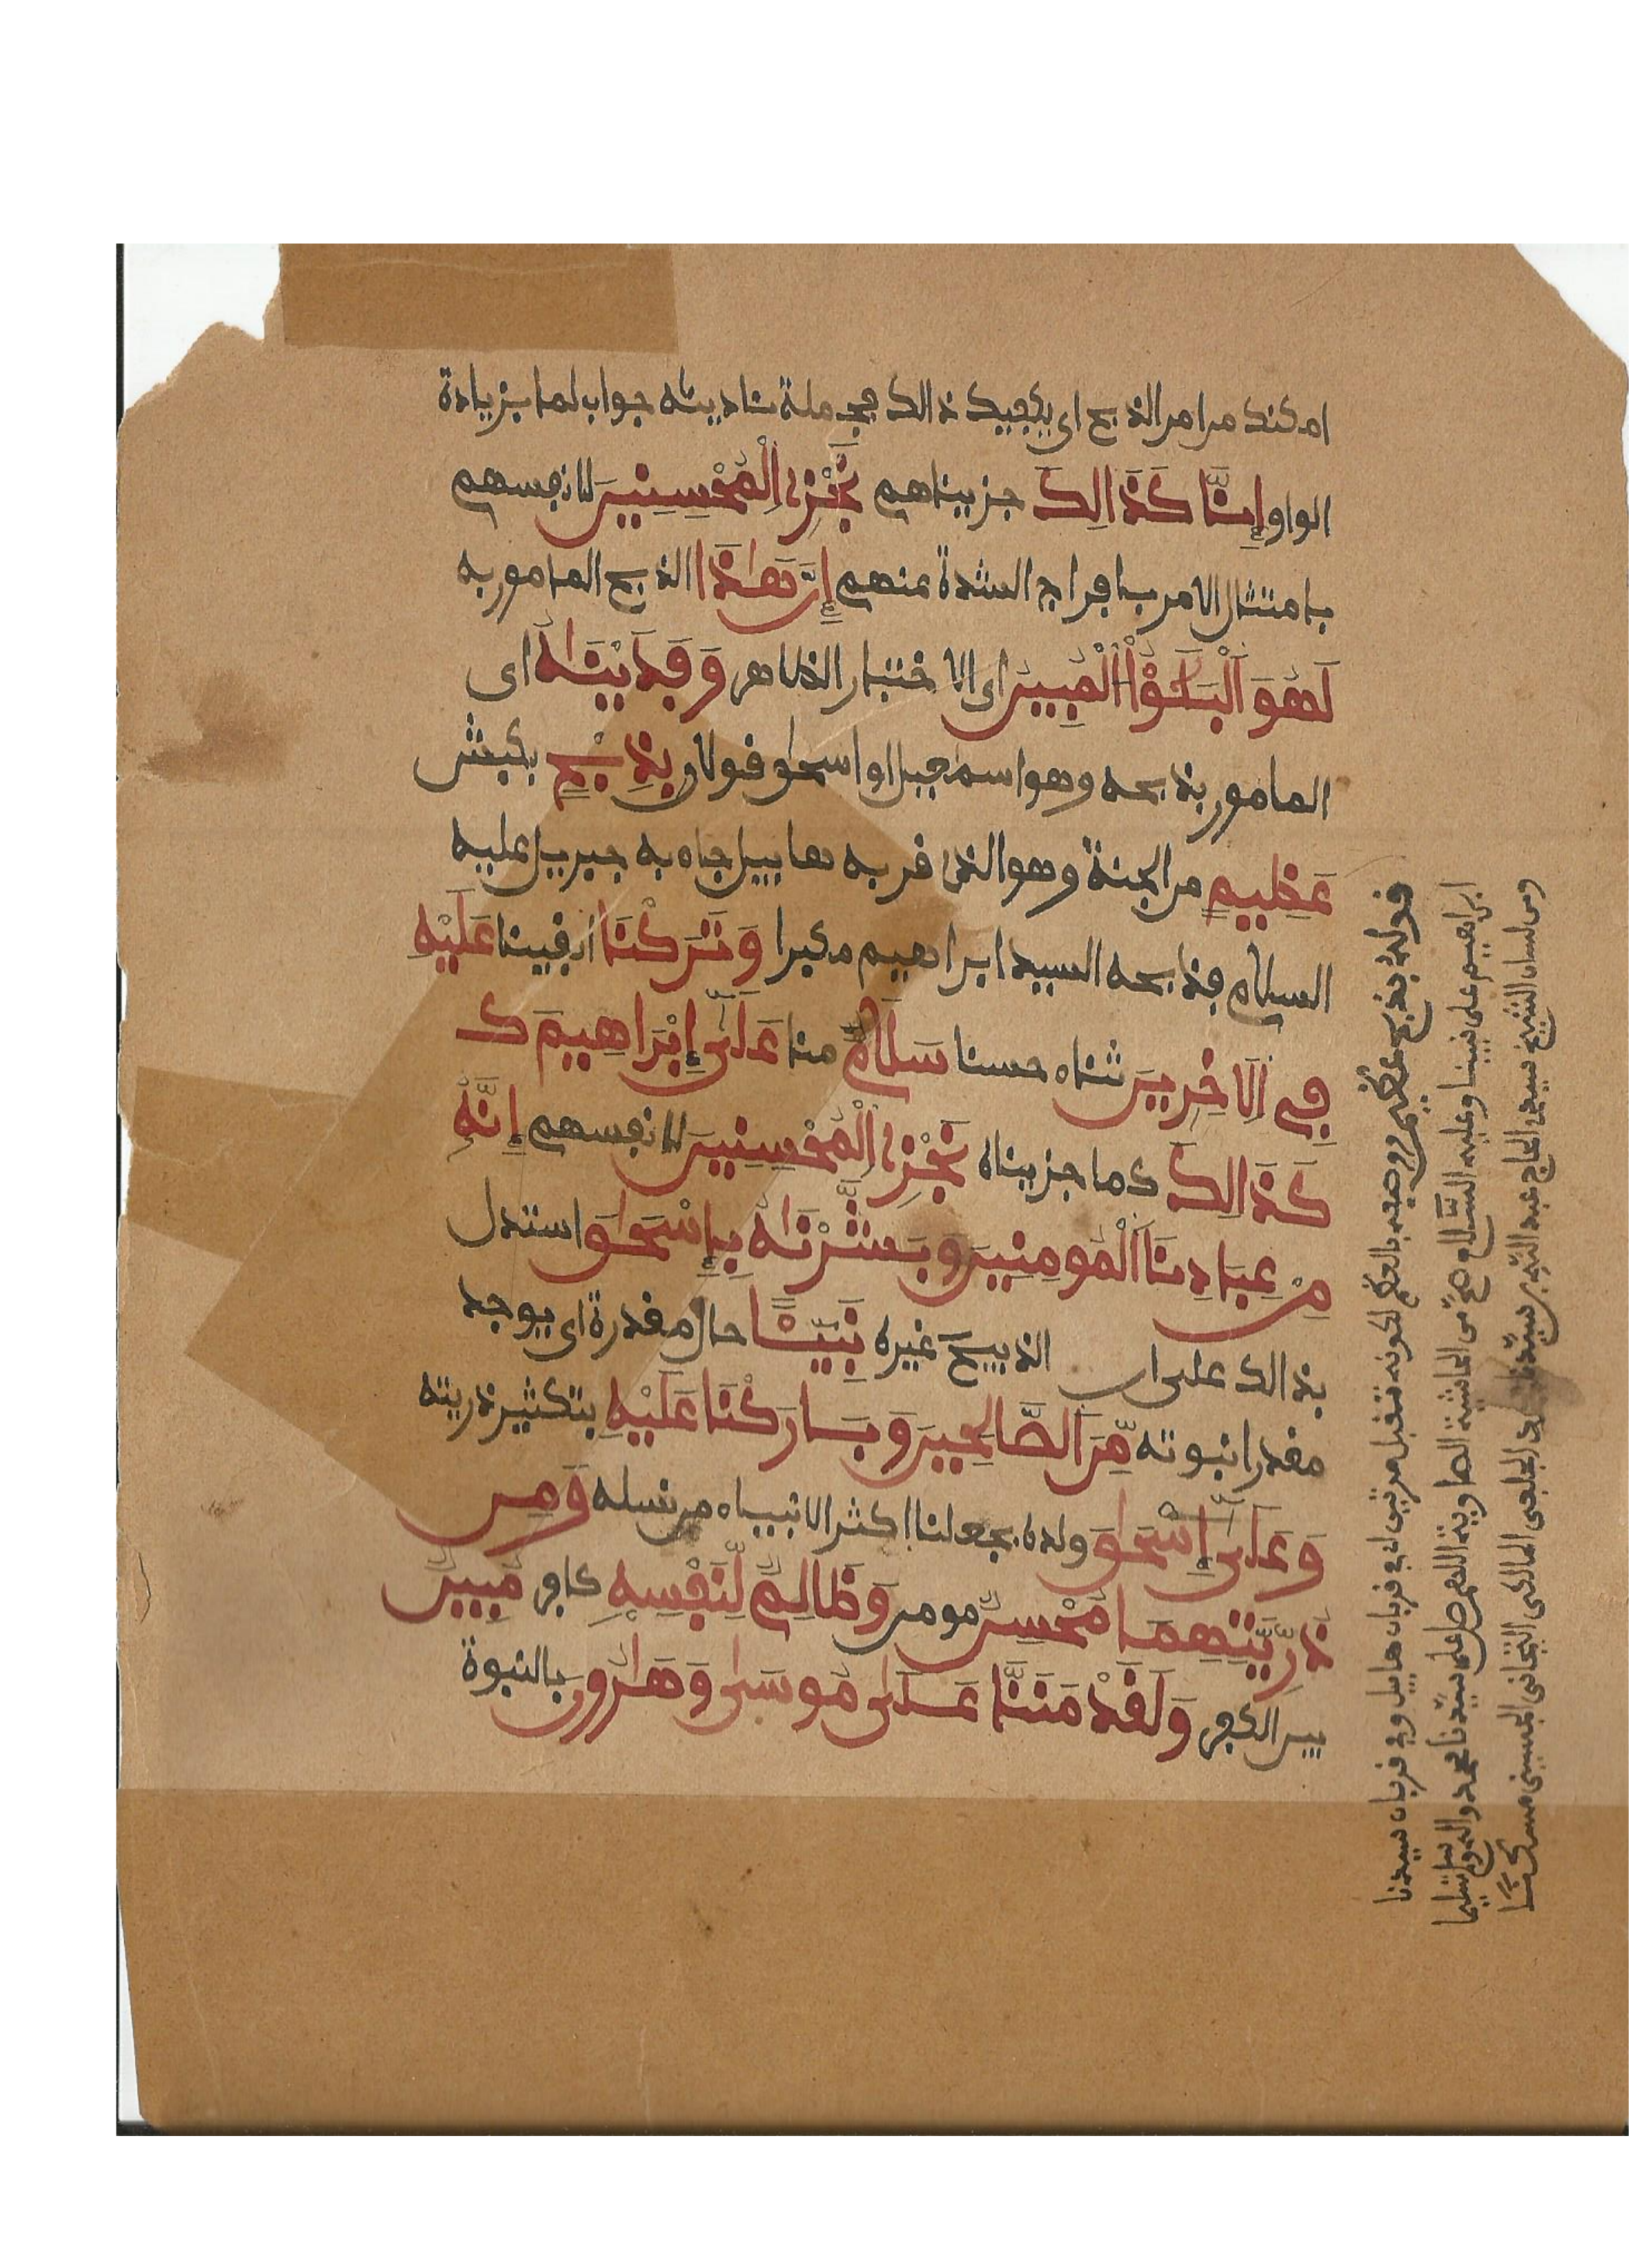 امكنك من امر الذبح اى يكفيك ذالك فجملة ناديناه جواب لما بزيادة
الواو إِنَّا كَذَالِكَ جزيناهم نَجْزِے اِلْمُحْسِنِينَ لانفسهم
بامتثال الامر بافراج الشدة عنهم إِنَّ هَاذَا الذبح المامور به
لَهُوَ اَلْبَلَٰٓؤُاْ اُلْمُبِينُ اى الاختبار الظاهر وَفَدَيْنَٰهُ اى
المامور بذبحه وهو اسمعيل او اسحٰق قولان بِذِبْحٍ بكبش
عَظِيمٍ من الجنة وهو الذى قربه هابيل جاء به جبريل عليه
السلام فذبحه السيد ابراهيم مكبرا وَتَرَكْنَا ابقينا عَلَيْهِ
فِے اِلَاخِرِينَ ثناء حسنا سَلَٰمٌ منا عَلَىٰٓ إِبْرَاهِيمَ كـ
كَذَالِكَ كما جزيناه نَجْزِے اِلْمُحْسِنِينَ لانفسهم إِنَّهُۥ
مِنْ عِبَادِنَا اَلْمُومِنِينَ وَبَشَّرْنَٰهُ بِإِسْحَٰقَ استدل
بذالك على ان الذبيح غيره نَبِيٓـًٔا حال مقدرة اى يوجد
مقدرا نبوته مِّنَ اَلصَّالِحِينَ وَبَارَكْنَا عَلَيْهِ بتكثير ذريته
وَعَلَىٰٓ إِسْحَٰقَ ولده بجعلنا اكثر الانبياء من نسله وَمِن
ذُرِّيَّتِهِمَا مُحْسِنٌ مومن وَظَالِمٌ لِّنَفْسِهِۦ كافر مُبِينٌ
بين الكفر وَلَقَدْ مَنَنَّا عَلَىٰ مُوسَىٰ وَهَٰرُونَ بالنبوة
قوله بذبح عظيم وصفه بالعظم لكونه تقبل مرتين اى فى قربان هابيل وفى قربان سيدنا
ابراهيم على نبينا وعليه السلام صح من الحاشية الصاوية اللهم صل على سيدنا محمد واله وسلم تسليما
ومن لسان الشيخ سيدى الحاج عبد الله بن سيدنا المالكى التجانى الحسينى مسكنا